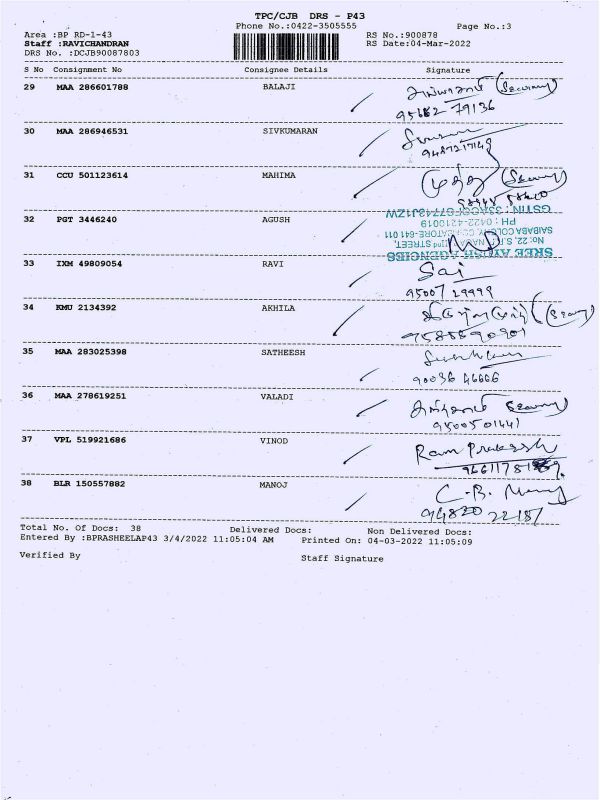 TPC/CJB DRS - P43
Phone No.:0422-3505555 Page No.:3
Area :BP RD-1-43 RS No.:900878
Staff :RAVICHANDRAN RS Date:04-Mar-2022
DRS No. :DCJB90087803
S No Consignment No Consignee Details Signature
29 MAA 286601788 BALAJI (Security)
79136
30 MAA 286946531 SIVKUMARAN
31 CCU 501123614 MAHIMA (Security)
32 PGT 3446240 AGUSH
GSTIN :
PH : 0422-4210019
SREE AYUSH AGENCIES
33 IXM 49809054 RAVI Sai
95007 29999
34 KMU 2134392 AKHILA
35 MAA 283025398 SATHEESH
90036 46666
36 MAA 278619251 VALADI
9500501441
37 VPL 519921686 VINOD Ram Prakash
38 BLR 150557882 MANOJ C.B. Manoj
94820 22187
Total No. Of Docs: 38 Delivered Docs: Non Delivered Docs:
Entered By :BPRASHEELAP43 3/4/2022 11:05:04 AM Printed On: 04-03-2022 11:05:09
Verified By Staff Signature